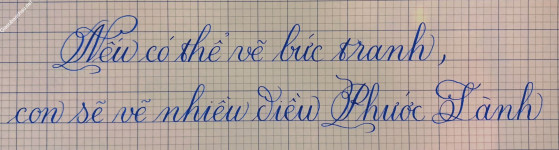 Nếu có thể vẽ bức tranh,
con sẽ vẽ nhiều điều Phước Lành